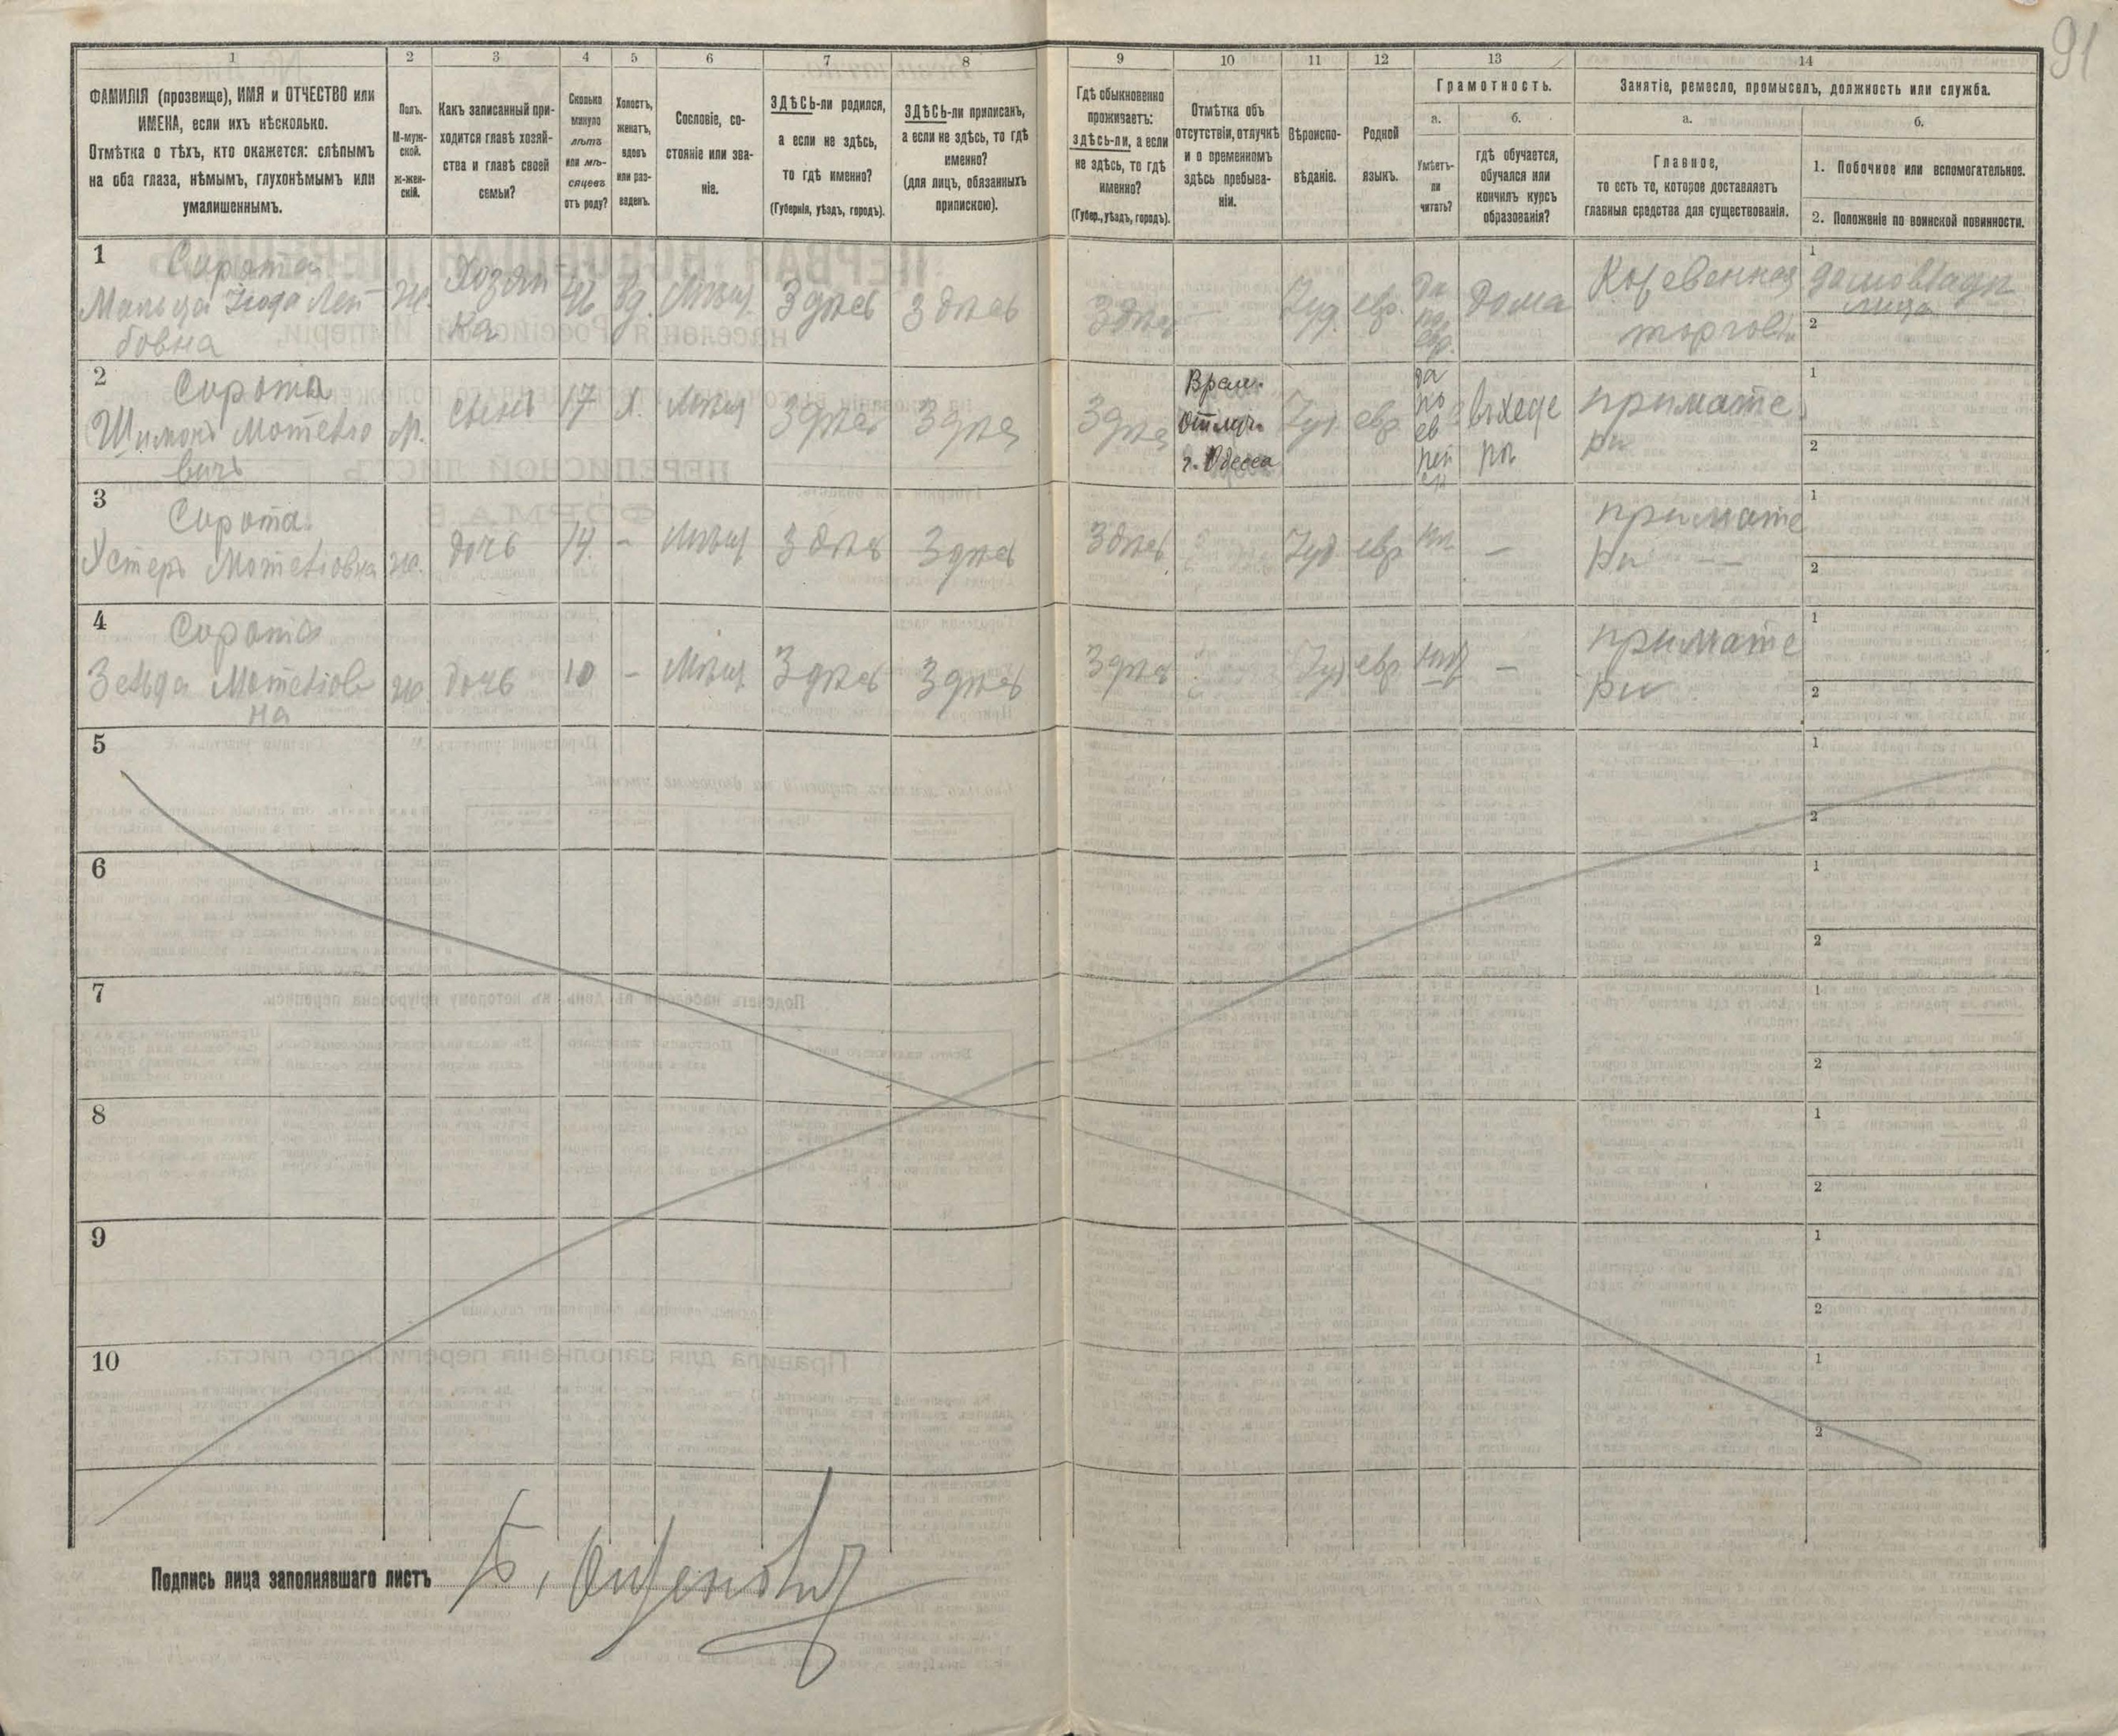 91
1
2
3
4
5
6
7
8
9
10
11
12
13
14
ФАМИЛІЯ (прозвище), ИМЯ и ОТЧЕСТВО или
ИМЕНА, если ихъ нѣсколько.
Отмѣтка о тѣхъ, кто окажется: слѣпымъ
на оба глаза, нѣмымъ, глухонѣмымъ или
умалишеннымъ.
Полъ.
М-муж-
ской.
ж-жен-
скій.
Какъ записанный при-
ходится главѣ хозяй-
ства и главѣ своей
семьи?
Сколько
минуло
лѣтъ
или мѣ-
сяцевъ
отъ роду?
Холостъ,
женатъ,
вдовъ
или раз-
веденъ.
Сословіе, со-
стояніе или зва-
ніе.
ЗДѢСЬ-ли родился,
а если не здѣсь,
то гдѣ именно?
(Губернія, уѣздъ, городъ).
ЗДѢСЬ-ли приписанъ,
а если не здѣсь, то гдѣ
именно?
(для лицъ, обязанныхъ
припискою).
Гдѣ обыкновенно
проживаетъ:
здѣсь-ли, а если
не здѣсь, то гдѣ
именно?
(Губер., уѣздъ, городъ).
Отмѣтка объ
отсутствіи, отлучкѣ
и о временномъ
здѣсь пребыва-
ніи.
Вѣроиспо-
вѣданіе.
Родной
языкъ.
Грамотность.
а.
Умѣетъ-
ли
читать?
б.
гдѣ обучается,
обучался или
кончилъ курсъ
образованія?
Занятіе, ремесло, промыселъ, должность или служба.
а.
Главное,
то есть то, которое доставляетъ
главныя средства для существованія.
б.
1. Побочное или вспомогательное.
2. Положеніе по воинской повинности.
1
Сирота
Ж.
Хозяй
ка
46
Вд.
Мѣщ.
Здѣсь
Здѣсь
Здѣсь
Іуд.
евр.
Да
Дома
торговля
1
2
2
Сирота
М.
Сынъ
17
Х.
Мѣщ
Здѣсь
Здѣсь
Здѣсь
Врем.
Отлуч.
г. Одесса
Іуд.
евр
да
по
ев
рей
ски
въ хеде
рѣ
при мате
ри
1
2
3
Сирота
ж.
дочь
14
-
Мѣщ
Здѣсь
Здѣсь
Здѣсь
Іуд
евр
—
при мате
ри
1
2
4
Сирота
ж
дочь
10
-
Мѣщ
Здѣсь
Здѣсь
Здѣсь
Іуд
евр
—
при мате
ри
1
2
5
1
2
6
1
2
7
1
2
8
1
2
9
1
2
10
1
2
Подпись лица заполнявшаго листъ